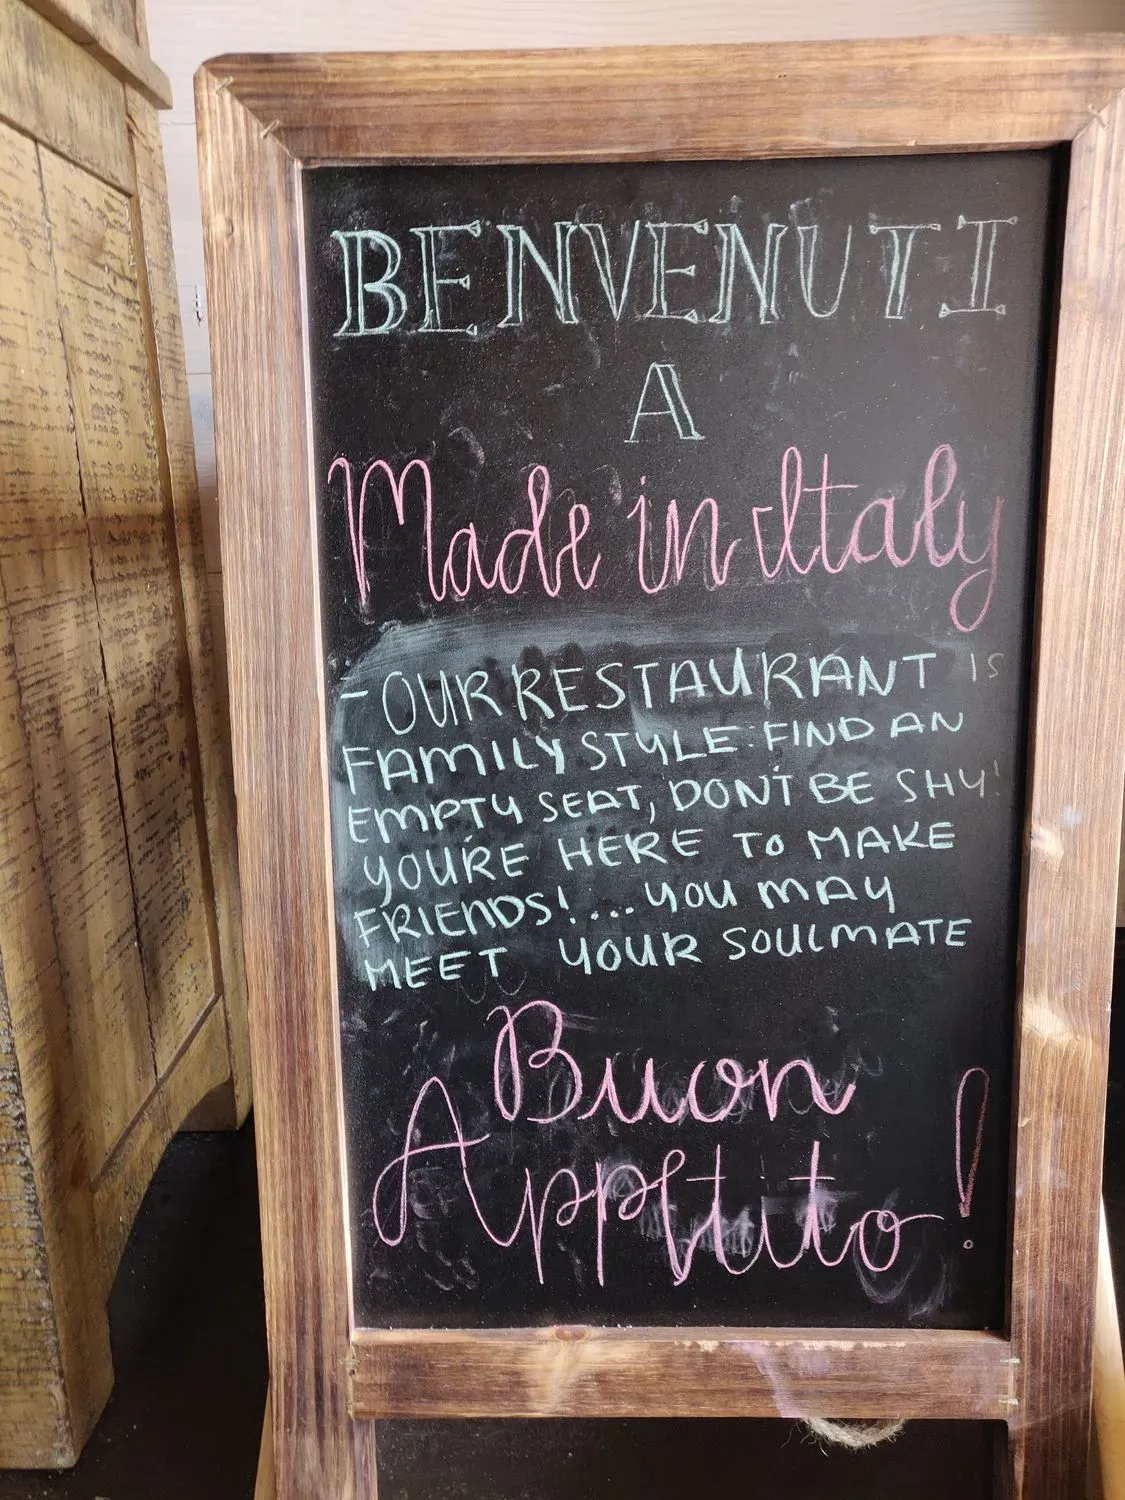 BENVENUTI
A
Made in Italy
- OUR RESTAURANT IS
FAMILY STYLE: FIND AN
EMPTY SEAT, DON'T BE SHY!
YOU'RE HERE TO MAKE
FRIENDS!... YOU MAY
MEET YOUR SOULMATE
Buon
Appetito!